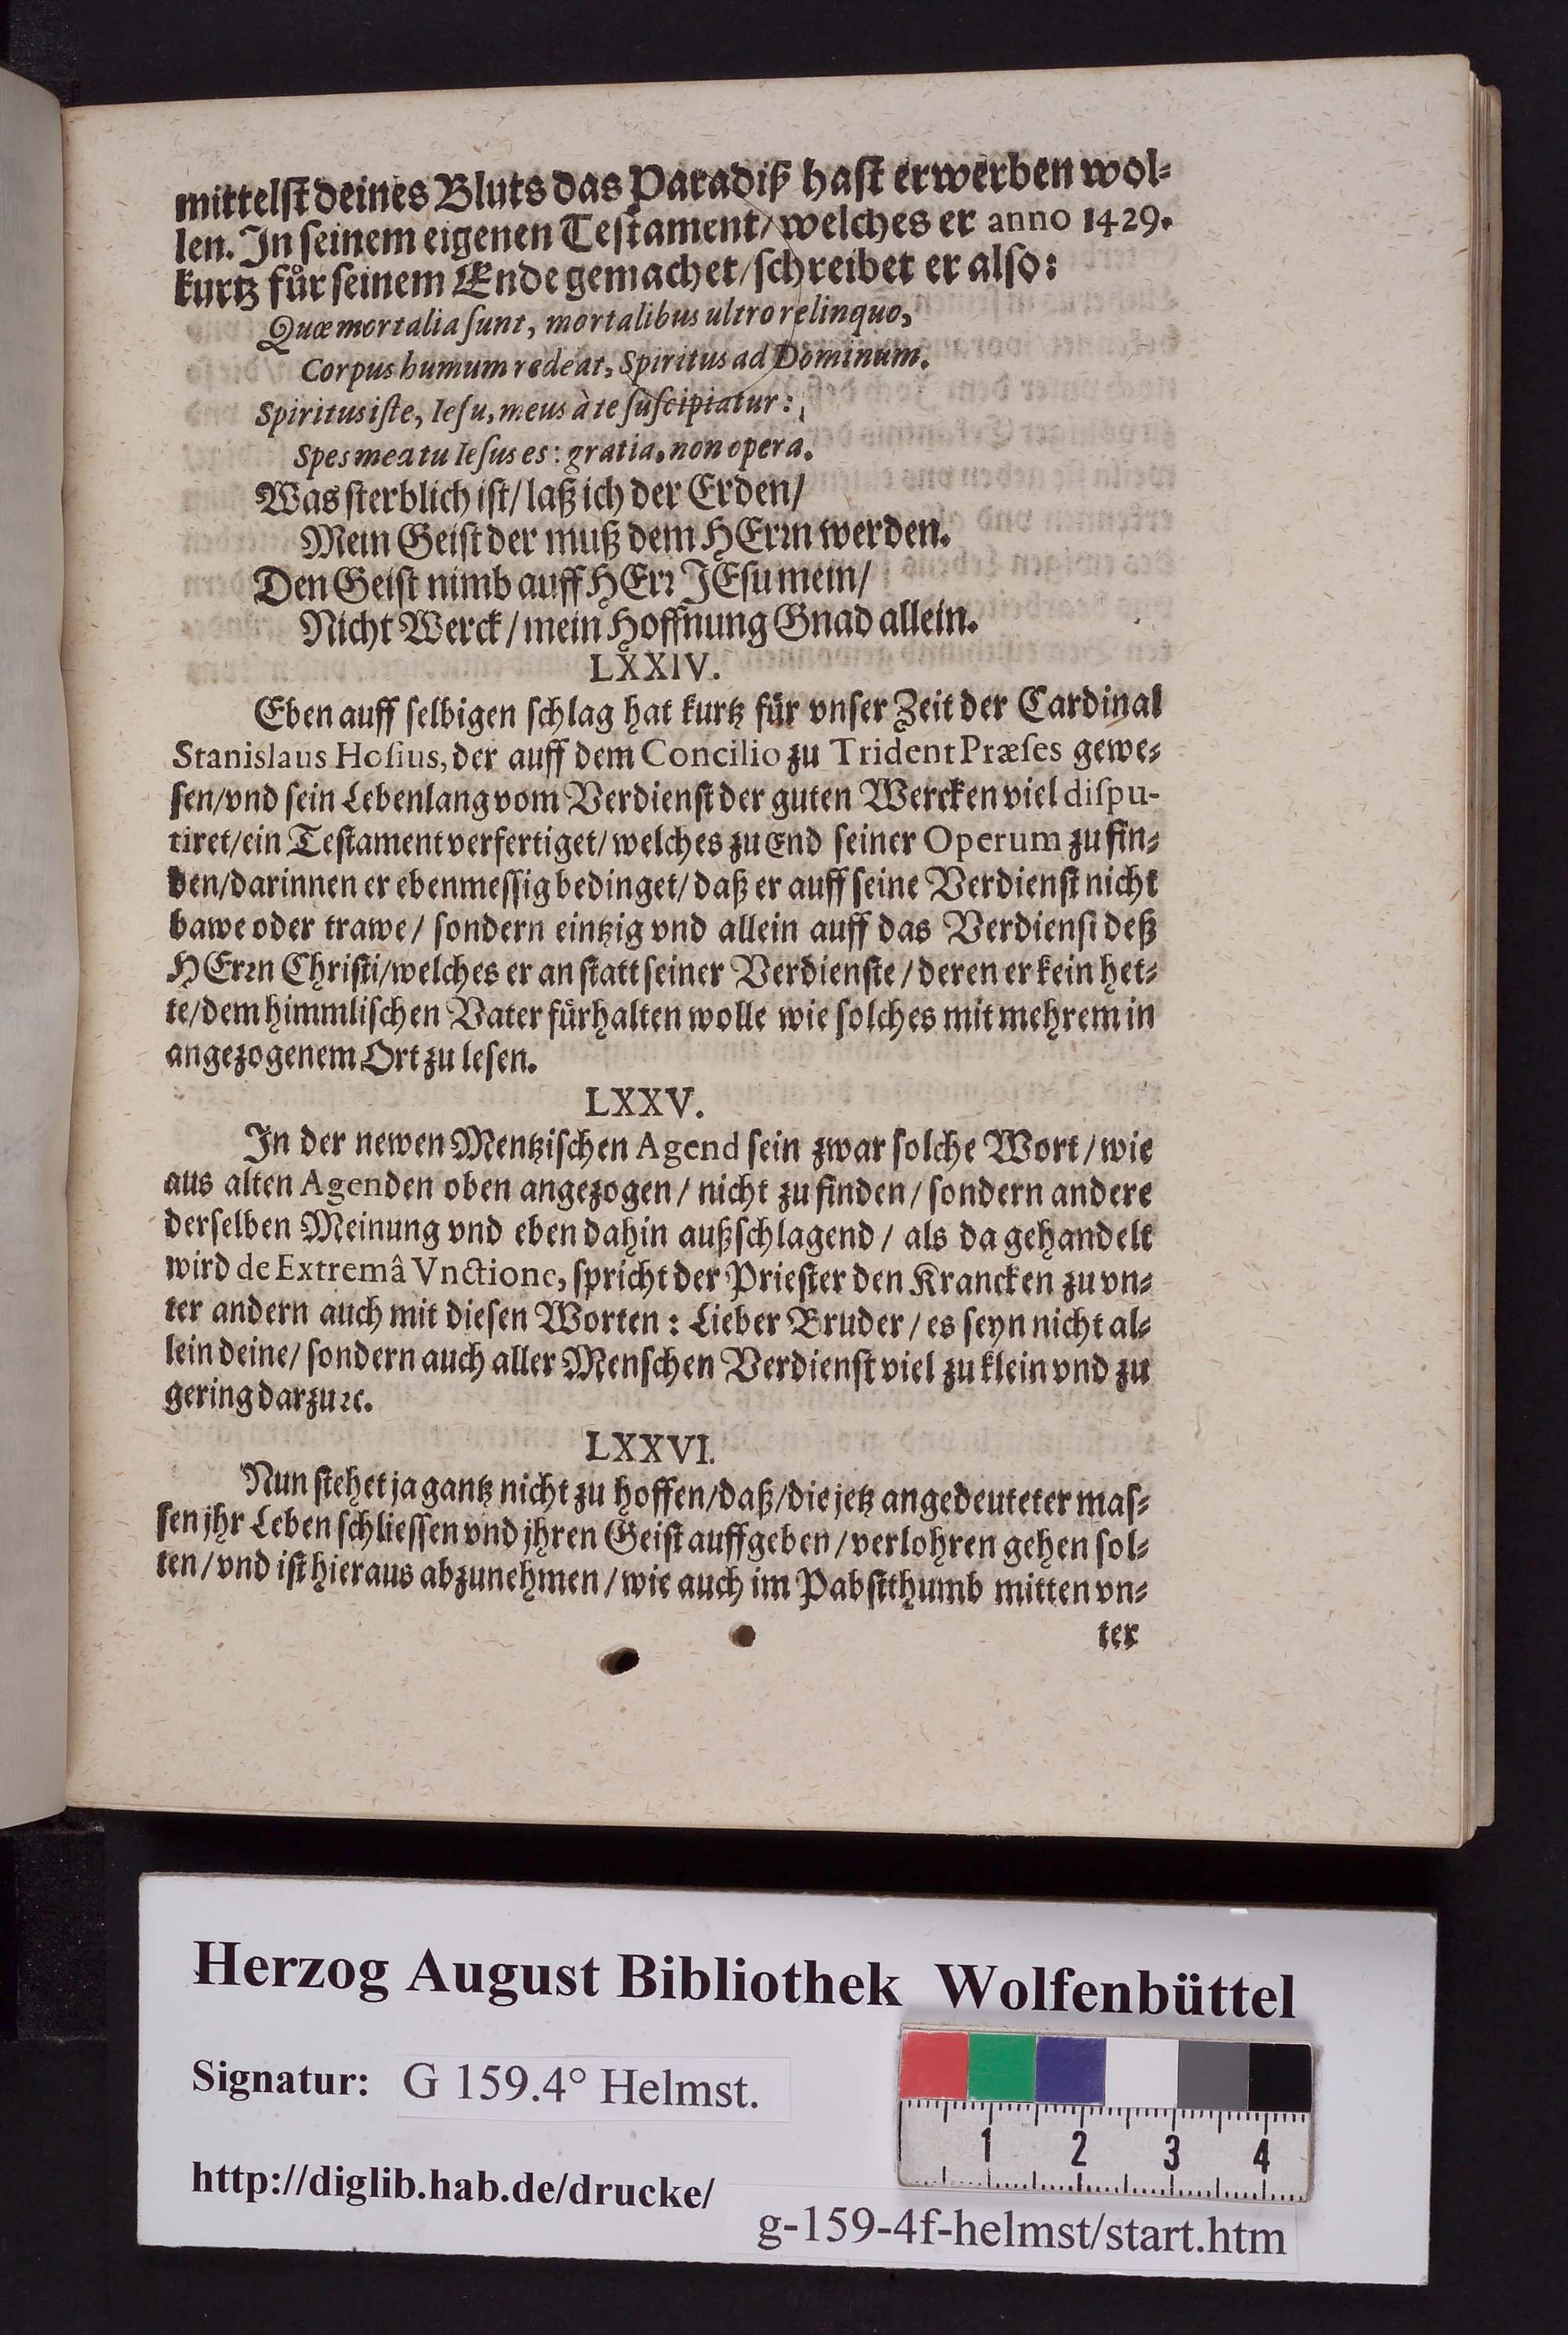 mittelſt deines Bluts das Paradiß haſt erwerben wol⸗
len. In ſeinem eigenen Teſtament/ welches er anno 1429.
kurtz fuͤr ſeinem Ende gemachet/ ſchreibet er alſo:
Quæ mortalia ſunt, mortalibus ultro relinquo,
Corpus humum redeat, Spiritus ad Dominum.
Spiritus iſte, Ieſu, meus à te ſuſcipiatur:
Spes mea tu Ieſus es: gratia, non opera.
Was ſterblich iſt/ laß ich der Erden/
Mein Geiſt der muß dem HErꝛn werden.
Den Geiſt nimb auff HErꝛ JEſu mein/
Nicht Werck/ mein Hoffnung Gnad allein.
LXXIV.
Eben auff ſelbigen ſchlag hat kurtz fuͤr vnſer Zeit der Cardinal
Stanislaus Hoſius, der auff dem Concilio zu Trident Præſes gewe⸗
ſen/ vnd ſein Lebenlang vom Verdienſt der guten Wercken viel diſpu-
tiret/ ein Teſtament verfertiget/ welches zu End ſeiner Operum zu fin⸗
den/ darinnen er ebenmeſſig bedinget/ daß er auff ſeine Verdienſt nicht
bawe oder trawe/ ſondern eintzig vnd allein auff das Verdienſt deß
HErꝛn Chriſti/ welches er an ſtatt ſeiner Verdienſte/ deren er kein het⸗
te/ dem himmliſchen Vater fuͤrhalten wolle wie ſolches mit mehrem in
angezogenem Ort zu leſen.
LXXV.
In der newen Mentziſchen Agend ſein zwar ſolche Wort/ wie
aus alten Agenden oben angezogen/ nicht zu finden/ ſondern andere
derſelben Meinung vnd eben dahin außſchlagend/ als da gehandelt
wird de Extremâ Vnctione, ſpricht der Prieſter den Krancken zu vn⸗
ter andern auch mit dieſen Worten: Lieber Bruder/ es ſeyn nicht al⸗
lein deine/ ſondern auch aller Menſchen Verdienſt viel zu klein vnd zu
gering darzu ꝛc.
LXXVI.
Nun ſtehet ja gantz nicht zu hoffen/ daß/ die jetz angedeuteter maſ⸗
ſen jhr Leben ſchlieſſen vnd jhren Geiſt auffgeben/ verlohren gehen ſol⸗
ten/ vnd iſt hieraus abzunehmen/ wie auch im Pabſtthumb mitten vn⸗
ter
Herzog August Bibliothek Wolfenbüttel
Signatur: G 159.4° Helmst.
1 2 3 4
http://diglib.hab.de/drucke/
g-159-4f-helmst/start.htm